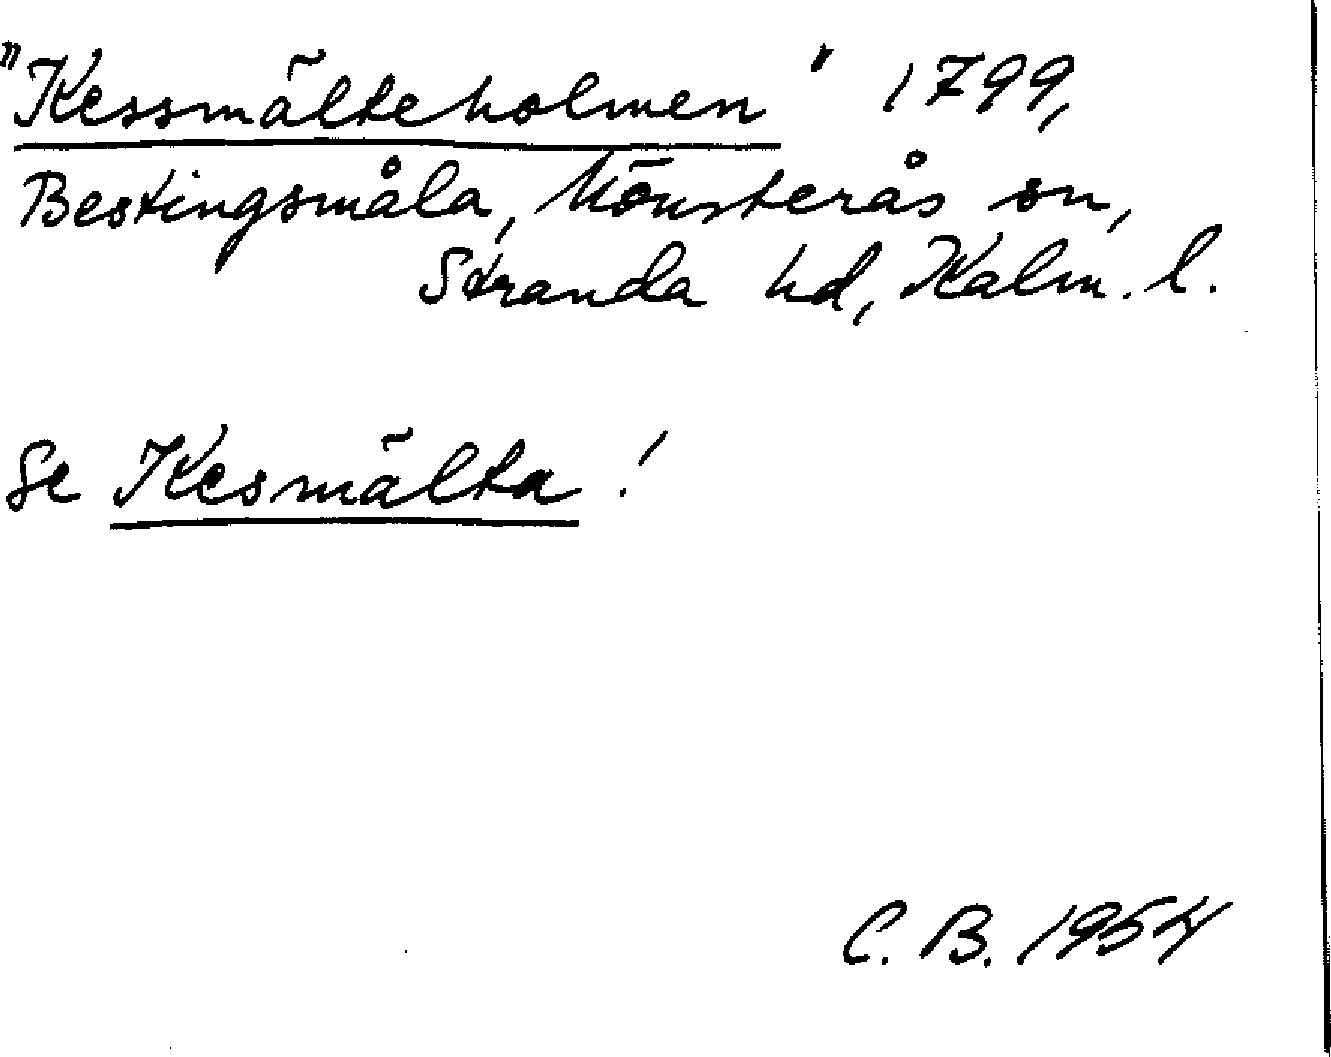 "Kessmälteholmen" 1799,
Bestingsmåla, Mönsterås sn,
Stranda hd, Kalm. l.
Se Kesmälta!
C. B. 1954